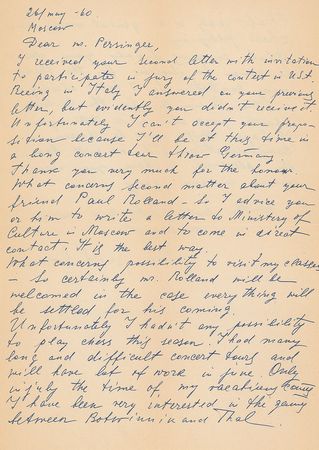 26/may -60
Moscow
Dear m. Persinger,
I received your second letter with invitation
to participate in jury of the contest in USA.
Beeing in Italy I answered on your previous
letter, but evidently you didn't receive it.
Unfortunately I can't accept your propo-
sition because I'll be at this time in
a long concert tour throw Germany.
Thank you very much for the honour.
What concerns second matter about your
friend Paul Rolland - So I advice you
or him to write a letter to Ministry of
Culture in Moscow and to come in direct
contact. It is the best way.
What concerns possibility to visit my classes
- So certainly mr. Rolland will be
welcomed in the case everything will
be settled for his coming.
Unfortunately I hadn't any possibility
to play chess this season. I had many
long and difficult concert tours and
will have lot of work in june. Only
in july the time of my vacations
I have been very interested in the games
between Botwinnik and Thal.